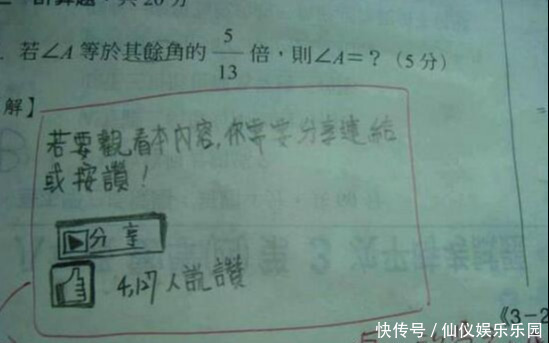 計算題，共20分
若∠A 等於其餘角的 5/13 倍，則∠A＝？（5分）
解】
若要觀看本內容，你需要分享連結
或按讚！
分享
4,127人說讚
《3-2
快传号／仙仪娱乐乐园